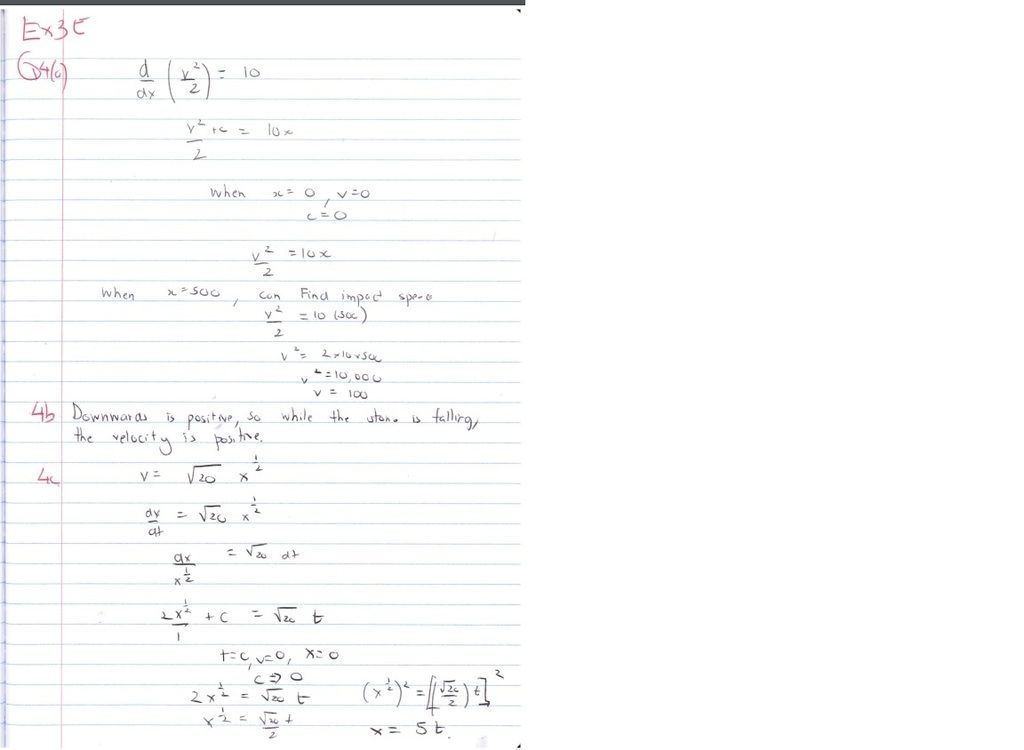 Ex3E
Q4(a) d/dx (v²/2) = 10
v²/2 + c = 10x
When x = 0, v=0
c = 0
v²/2 = 10x
When x = 500, can Find impact speed
v²/2 = 10(500)
v² = 2×10×500
v² = 10,000
v = 100
4b Downwards is positive, so while the stone is falling,
the velocity is positive.
4c v = √20 x^½
dx/dt = √20 x^½
dx/x^½ = √20 dt
2x^½/1 + C = √20 t
t=0, v=0, x=0
C => 0
2x^½ = √20 t
x^½ = √20/2 t
(x^½)² = [(√20/2) t]²
x = 5t.